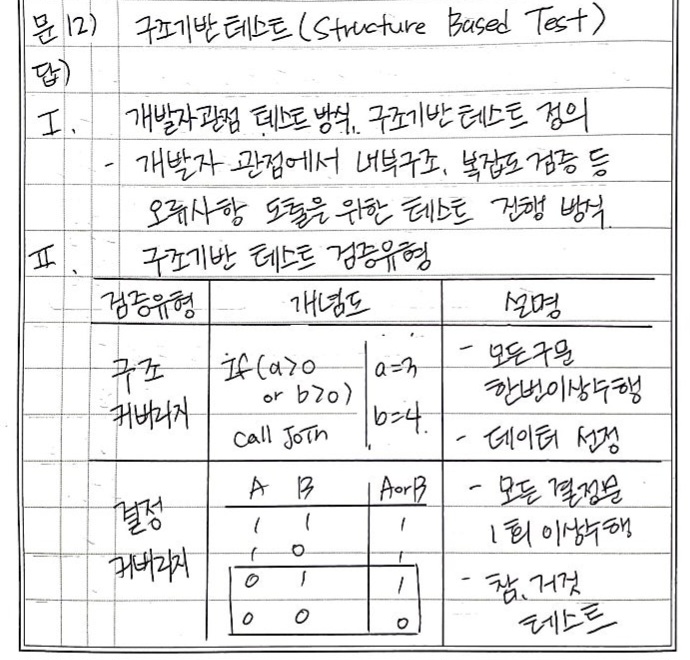 문 12) 구조기반 테스트 (Structure Based Test)
답)
I. 개발자 관점 테스트 방식, 구조기반 테스트 정의
- 개발자 관점에서 내부구조, 복잡도 검증 등
오류사항 도출을 위한 테스트 진행 방식
II. 구조기반 테스트 검증유형
검증유형 개념도 설명
구조
커버리지
if (a>0
or b>0)
call Join
a=3
b=4
- 모든구문
한번이상수행
- 데이터 선정
결정
커버리지
A B A or B
1 1 1
1 0 1
0 1 1
0 0 0
- 모든 결정문
1회 이상수행
- 참, 거짓
테스트